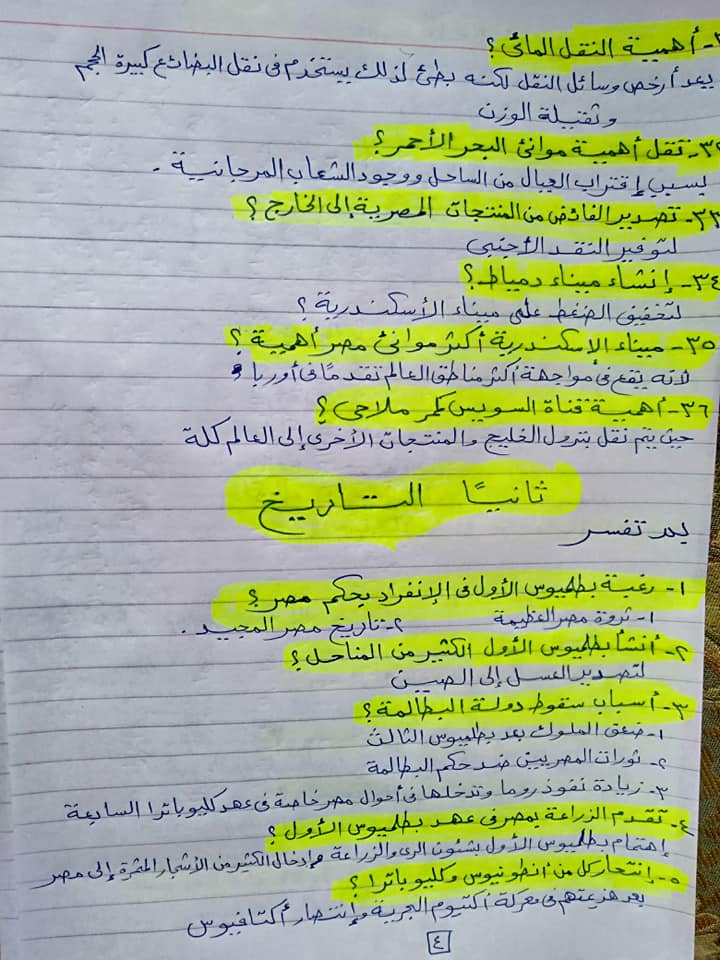 - أهمية النقل المائى ؟
يعد أرخص وسائل النقل لكنه بطئ لذلك يستخدم فى نقل البضائع كبيرة الحجم
وثقيلة الوزن
٣٢- تقل أهمية موانئ البحر الأحمر ؟
بسبب إقتراب الجبال من الساحل ووجود الشعاب المرجانية .
٣٣- تصدير الفائض من المنتجات المصرية إلى الخارج ؟
لتوفير النقد الأجنبى
٣٤- إنشاء ميناء دمياط ؟
لتخفيف الضغط على ميناء الأسكندرية ؟
٣٥- ميناء الإسكندرية أكثر موانئ مصر أهمية ؟
لأنه يقع فى مواجهة أكثر مناطق العالم تقدمًا فى أوربا
٣٦- أهمية قناة السويس كممر ملاحى ؟
حيث يتم نقل بترول الخليج والمنتجات الأخرى إلى العالم كلة
ثانيًا التاريخ
بم تفسر
١- رغبة بطلميوس الأول فى الإنفراد بحكم مصر ؟
١- ثروة مصر العظيمة ٢- تاريخ مصر المجيد .
٢- أنشأ بطلميوس الأول الكثير من المناحل ؟
لتصدير العسل إلى الصين
٣- أسباب سقوط دولة البطالمة ؟
١- ضعف الملوك بعد بطلميوس الثالث
٢- ثورات المصريين ضد حكم البطالمة
٣- زيادة نفوذ روما وتدخلها فى أحوال مصر خاصة فى عهد كليوباترا السابعة
٤- تقدم الزراعة بمصر فى عهد بطلميوس الأول ؟
إهتمام بطلميوس الأول بشئون الرى والزراعة وإدخال الكثير من الأشجار المثمرة إلى مصر
٥- إنتحار كل من أنطونيوس وكليوباترا ؟
بعد هزيمتهم فى معركة أكتيوم البحرية وإنتصار أكتافيوس
٤